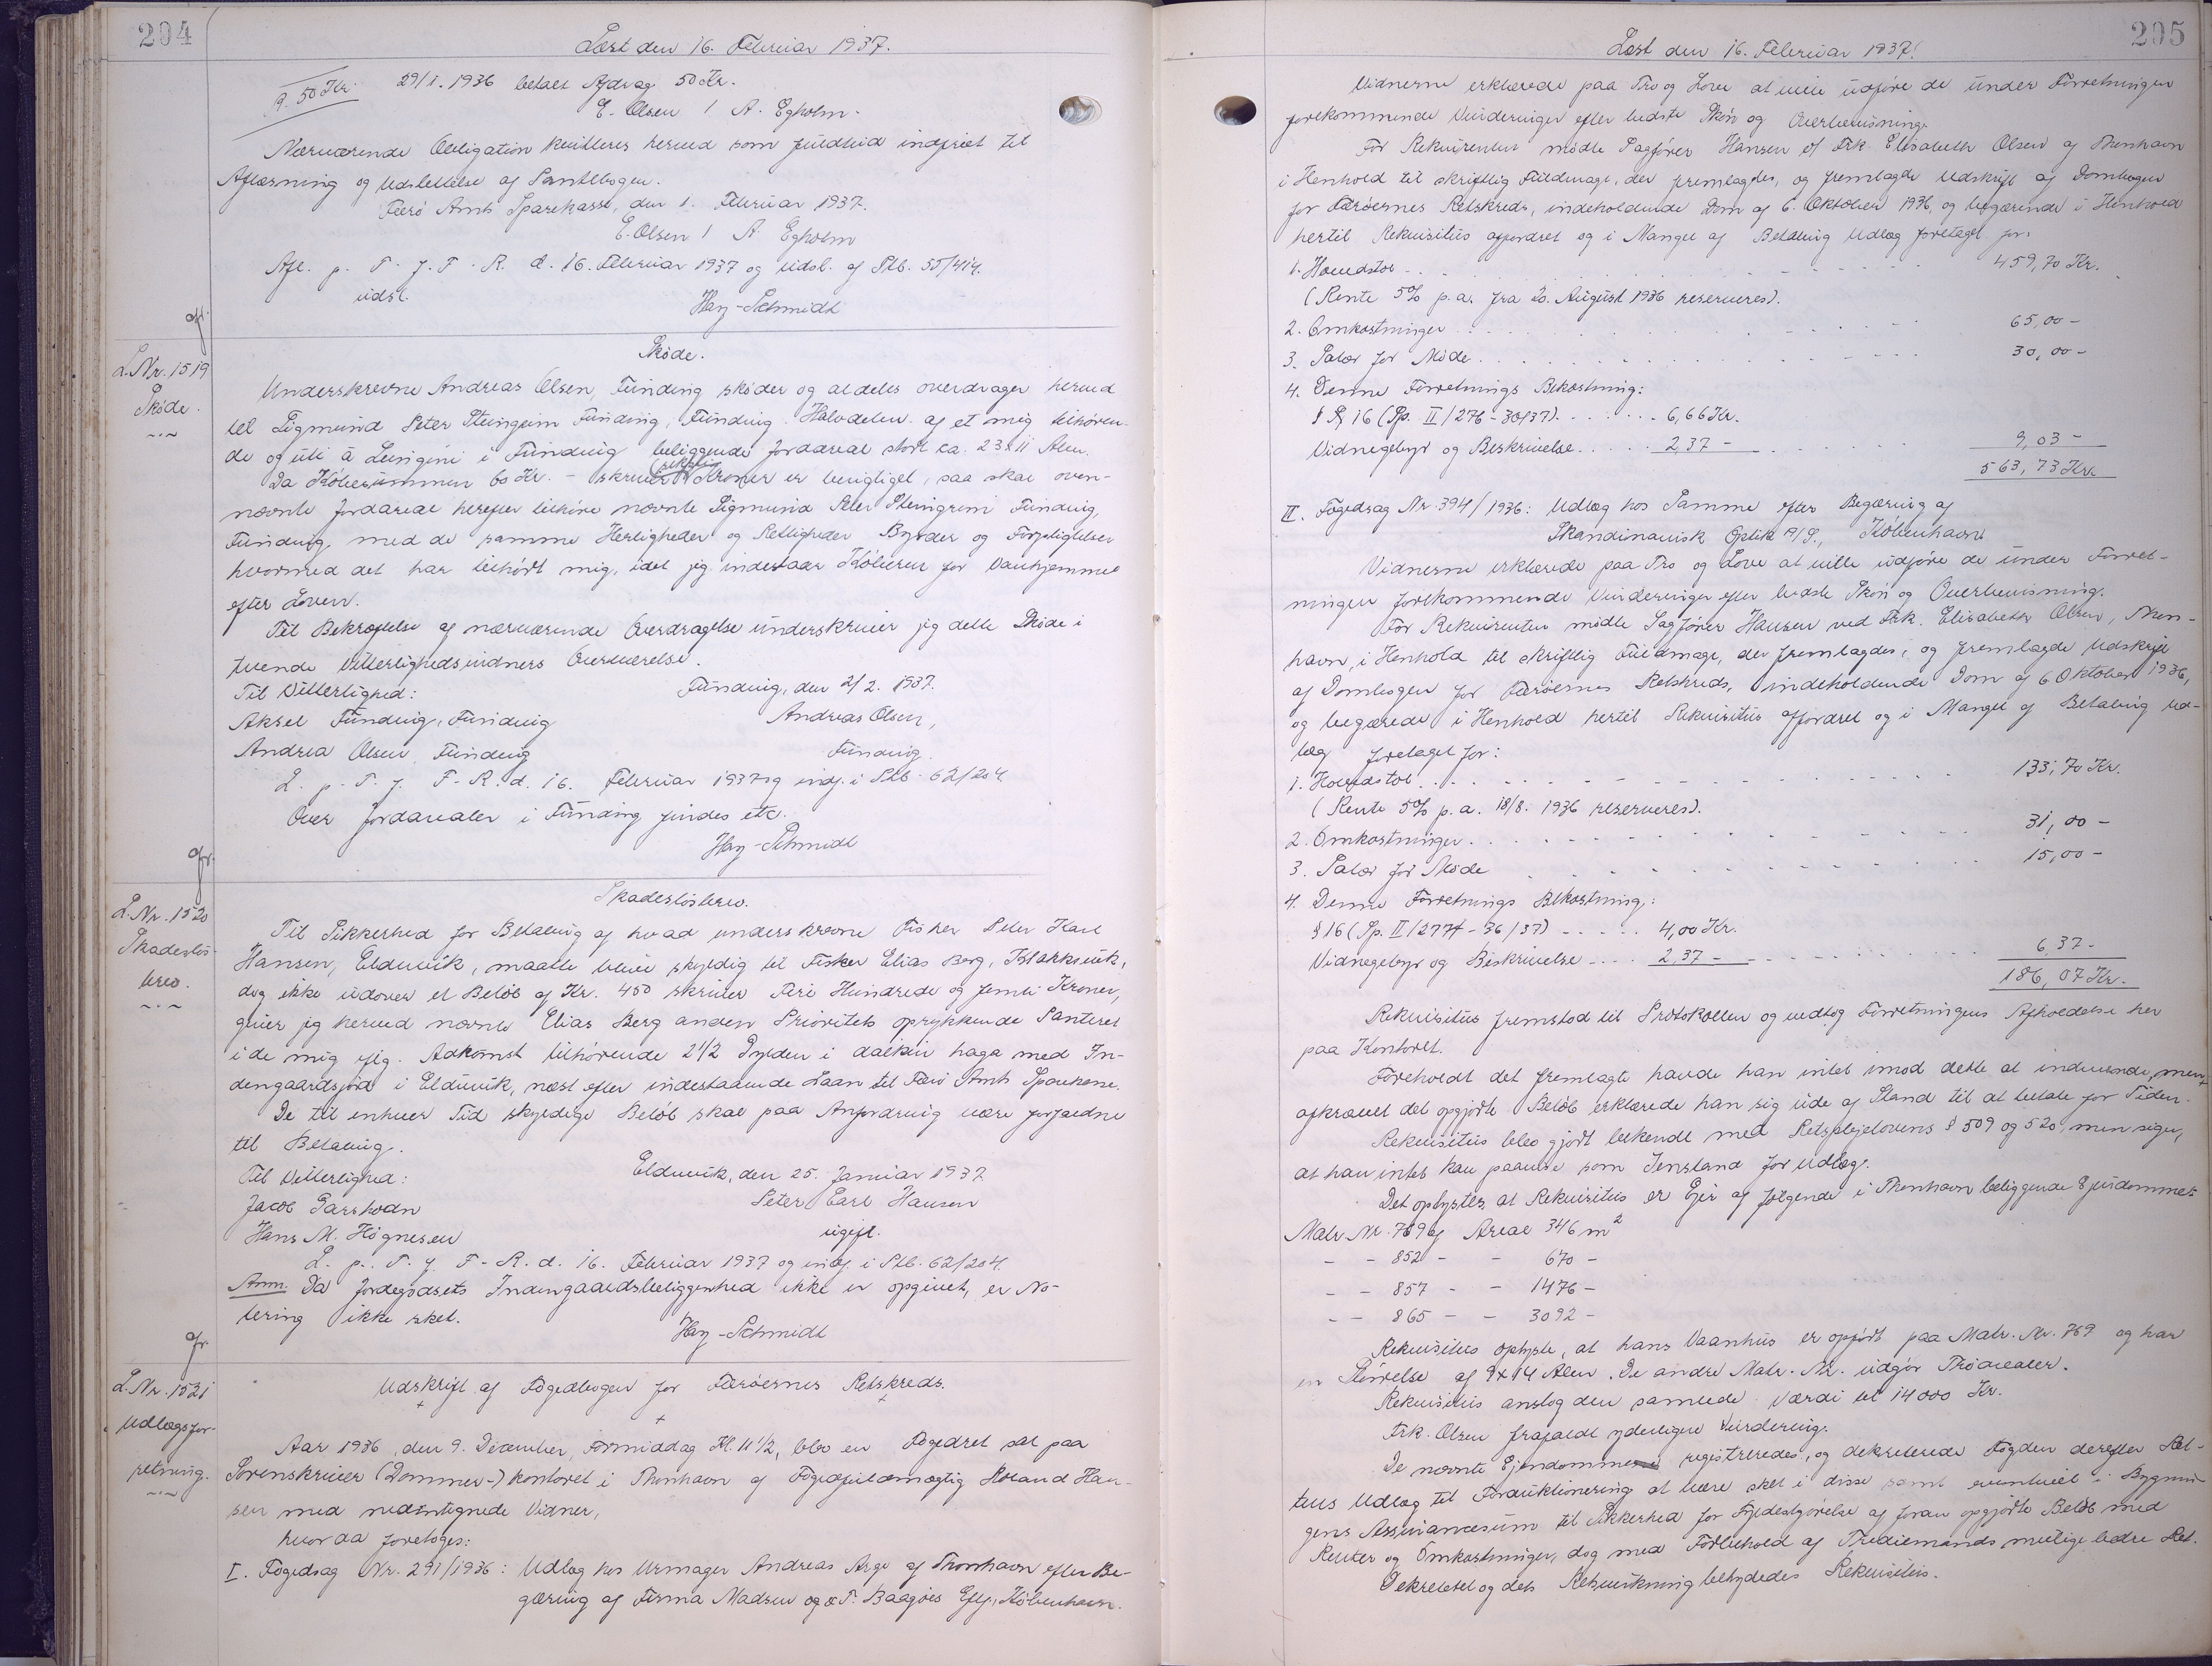 204
Læst den 16. Februar 1937.
R. 50 Kr.
29/1. 1936 betalt Afdrag 50 Kr.
E. Olsen / A. Egholm.
Nærværende Obligation kvitteres herved som fuldtud indfriet til
Aflæsning og Udslettelse af Pantebogen.
Færø Amts Sparekasse, den 1. Februar 1937.
E. Olsen / A. Egholm
Afl. p. T. f. F. R. d. 16. Februar 1937 og udsl. af Ptb. 55/414.
udsl.
Hay-Schmidt
gf.
L.Nr. 1519
Skøde.
Skøde.
Underskrevne Andreas Olsen, Funding skøder og aldeles overdrager herved
til Sigmund Peter Steingrim Funding, Funding. Halvdelen af et mig tilhøren-
de og uti á Leingini i Funding beliggende Jordareal stort ca. 23 x 11 Alen.
Da Købesummen 60 Kr. - skriver seksti Kroner er berigtiget, saa skal oven-
nævnte Jordareal herefter tilhøre nævnte Sigmund Peter Steingrim Funding,
Funding, med de samme Herligheder og Rettigheder Byrder og Forpligtelser
hvormed det har tilhørt mig, idet jeg indestaar Køberen for Vanhjemmel
efter Loven.
Til Bekræftelse af nærværende Overdragelse underskriver jeg dette Skøde i
tvende Vitterlighedsvidners Overværelse.
Til Vitterlighed:
Funding, den 2/2. 1937.
Aksel Funding, Funding
Andreas Olsen,
Andrea Olsen Funding
Funding.
L. p. T. f. F-R. d. 16. Februar 1937 og indf. i Ptb. 62/204.
Over Jordarealer i Funding findes etc.
Hay-Schmidt
gf.
L.Nr. 1520
Skadesløs-
brev.
Skadesløsbrev.
Til Sikkerhed for Betaling af hvad underskrevne Fisker Peter Karl
Hansen, Elduvik, maatte blive skyldig til Fisker Elias Berg, Klaksvik,
dog ikke udover et Beløb af Kr. 450 skriver Fire Hundrede og femti Kroner,
giver jeg herved nævnte Elias Berg anden Prioritets oprykkende Panteret
i de mig iflg. Adkomst tilhørende 2 1/2 Gylden i dalkin haga med In-
dengaardsjord i Elduvik, næst efter indestaaende Laan til Færø Amts Sparekasse.
De til enhver Tid skyldige Beløb skal paa Anfordring være forfaldne
til Betaling.
Til Vitterlighed:
Elduvik, den 25. Januar 1937
Jacob Garshodn
Peter Carl Hansen
Hans M. Høgnesen
ugift.
L. p. T. f. F-R. d. 16. Februar 1937 og indf. i Ptb. 62/204.
Anm. Da Jordegodsets Indengaardsbeliggenhed ikke er opgivet, er No-
tering ikke sket.
Hay-Schmidt
gf.
L.Nr. 1521
Udlægsfor-
retning.
Udskrift af Fogedbogen for Færøernes Retskreds.
Aar 1936, den 9. December, Formiddag Kl. 11 1/2, blev en Fogedret sat paa
Sorenskriver (Dommer-) kontoret i Thorshavn af Fogedfuldmægtig Roland Han-
sen med nedentegnede Vidner,
hvorda foretoges:
I. Fogedsag Nr. 291/1936: Udlæg hos Urmager Andreas Arge af Thorshavn efter Be-
gæring af Firma Madsen og æ T. Baagøes Eftf., København.
205
Læst den 16. Februar 1937.
Vidnerne erklærede paa Tro og Love at ville udføre de under Forretningen
forekommende Vurderinger efter bedste Skøn og Overbevisning.
For Rekvirenten mødte Sagfører Hansen v/ Frk. Elisabeth Olsen af Thorshavn
i Henhold til skriftlig Fuldmagt, der fremlagdes, og fremlagde Udskrift af Dombogen
for Færøernes Retskreds, indeholdende Dom af 6. Oktober 1936, og begærende i Henhold
hertil Rekvisitus affordret og i Mangel af Betaling Udlæg foretaget for:
1. Hovedstol . . . 459,70 Kr.
(Rente 5% p.a. fra 20. August 1936 reserveres).
2. Omkostninger . . . 65,00 -
3. Salær for Møde . . . 30,00 -
4. Denne Forretnings Bekostning:
§ 16 (Sp. II/276-30/37) . . . 6,66 Kr.
Vidnegebyr og Beskrivelse . . . 2,37 - . . . 9,03 -
563,73 Kr.
II. Fogedsag Nr. 394/1936: Udlæg hos Samme efter Begæring af
Skandinavisk Optik A/S., København
Vidnerne erklærede paa Tro og Love at ville udføre de under Forret-
ningen forekommende Vurderinger efter bedste Skøn og Overbevisning.
For Rekvirenten mødte Sagfører Hansen ved Frk. Elisabeth Olsen, Thors-
havn, i Henhold til skriftlig Fuldmagt, der fremlagdes, og fremlagde Udskrift
af Dombogen for Færøernes Retskreds, indeholdende Dom af 6 Oktober 1936,
og begærede i Henhold hertil Rekvisitus affordret og i Mangel af Betaling Ud-
læg foretaget for:
1. Hovedstol . . . 133,70 Kr.
(Rente 5% p.a. 18/8. 1936 reserveres).
2. Omkostninger . . . 31,00 -
3. Salær for Møde . . . 15,00 -
4. Denne Forretnings Bekostning:
§ 16 (Sp. II/277-36/37) . . . 4,00 Kr.
Vidnegebyr og Beskrivelse . . . 2,37 - . . . 6,37 -
186,07 Kr.
Rekvisitus fremstod til Protokollen og vedtog Forretningens Afholdelse her
paa Kontoret.
Foreholdt det fremlagte havde han intet imod dette at indvende, men
afkrævet det opgjorte Beløb erklærede han sig ude af Stand til at betale for Tiden.
Rekvisitus blev gjort bekendt med Retsplejelovens § 509 og 520, men siger,
at han intet kan paavise som Genstand for Udlæg.
Det oplystes, at Rekvisitus er Ejer af følgende i Thorshavn beliggende Ejendomme:
Matr. Nr. 769 af Areal 346 m2
- - 852 - - 670 -
- - 857 - - 1476 -
- - 865 - - 3092 -
Rekvisitus oplyste, at hans Vaanhus er opført paa Matr. Nr. 769 og har
en Størrelse af 9 x 14 Alen. De andre Matr. Nr. udgør Trøarealer.
Rekvisitus anslog den samlede Værdi til 14000 Kr.
Frk. Olsen frafaldt yderligere Vurdering.
De nævnte Ejendomme registreredes, og dekreterede Fogden derefter Ret-
tens Udlæg til Forauktionering at være sket i disse samt eventuelt i Bygnin-
gens Assurancesum til Sikkerhed for Fyldestgørelse af foran opgjorte Beløb med
Renter og Omkostninger, dog med Forbehold af Trediemands mulige bedre Ret.
Dekretet og dets Retsvirkning betydedes Rekvisitus.